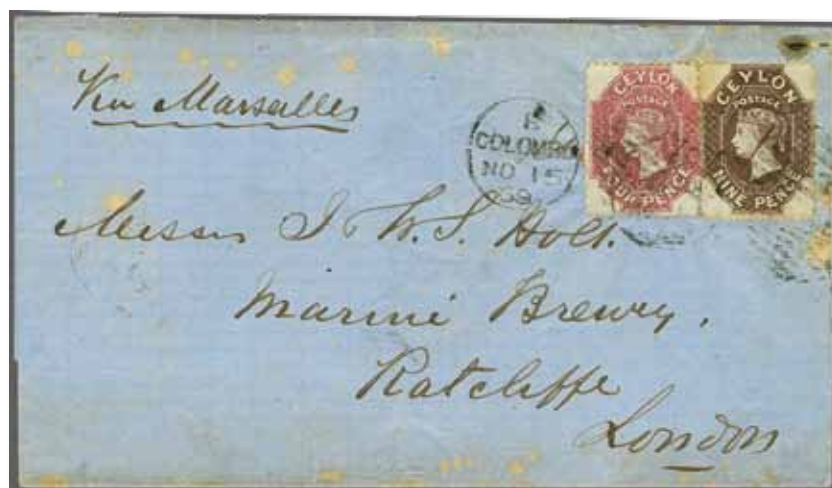 Via Marseilles
B
COLOMBO
NO 15
69
CEYLON
POSTAGE
FOUR PENCE
CEYLON
POSTAGE
NINE PENCE
Messrs I & W. S. Holt.
Marine Brewery,
Ratcliffe
London